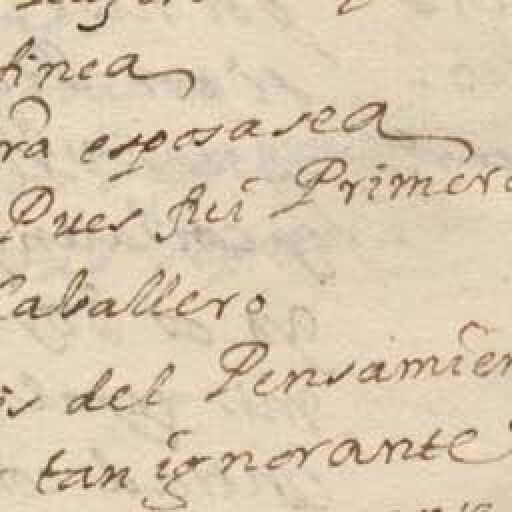 finea
rã esposa sea
Pues fui Primero
Caballero
is del Pensamien
tan ignorante